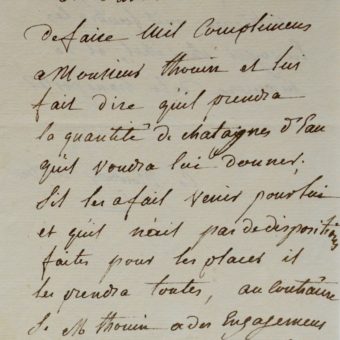 de faire Mil Complimens
a Monsieur thouin et lui
fait dire qu'il prendra
la quantité de chataignes d'Eau
qu'il voudra lui donner,
S'il les a fait venir pour lui
et qu'il n'ait pas de dispositions
faites pour les placer il
les prendra toutes, au Contraire
Se M thouin a des Engagemens